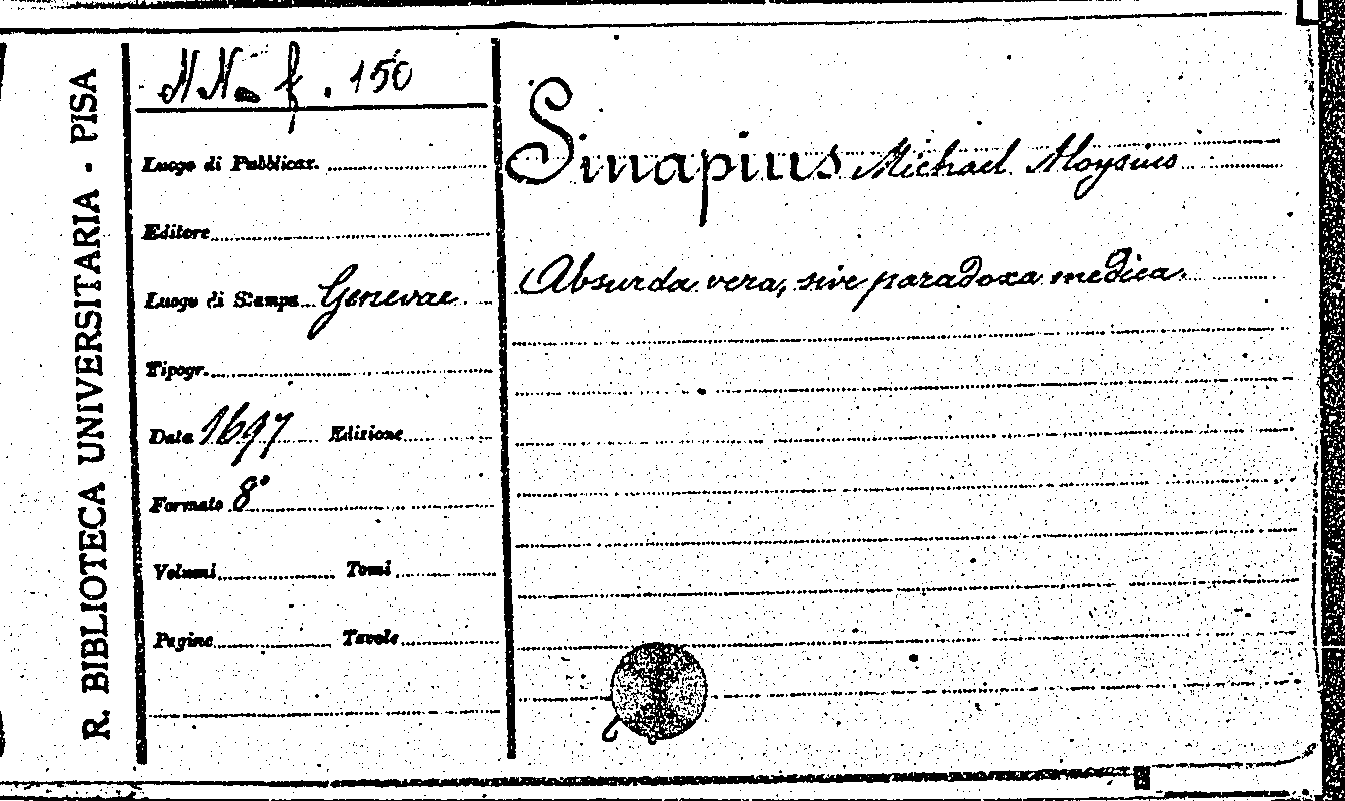 R. BIBLIOTECA UNIVERSITARIA - PISA
NN. f. 150
Luogo di Pubblicaz.
Editore
Luogo di Stampa Genevae.
Tipogr.
Data 1697 Edizione
Formato 8°
Volumi Tomi
Pagine Tavole
Sinapius Michael Aloysius
Absurda vera, sive paradoxa medica.